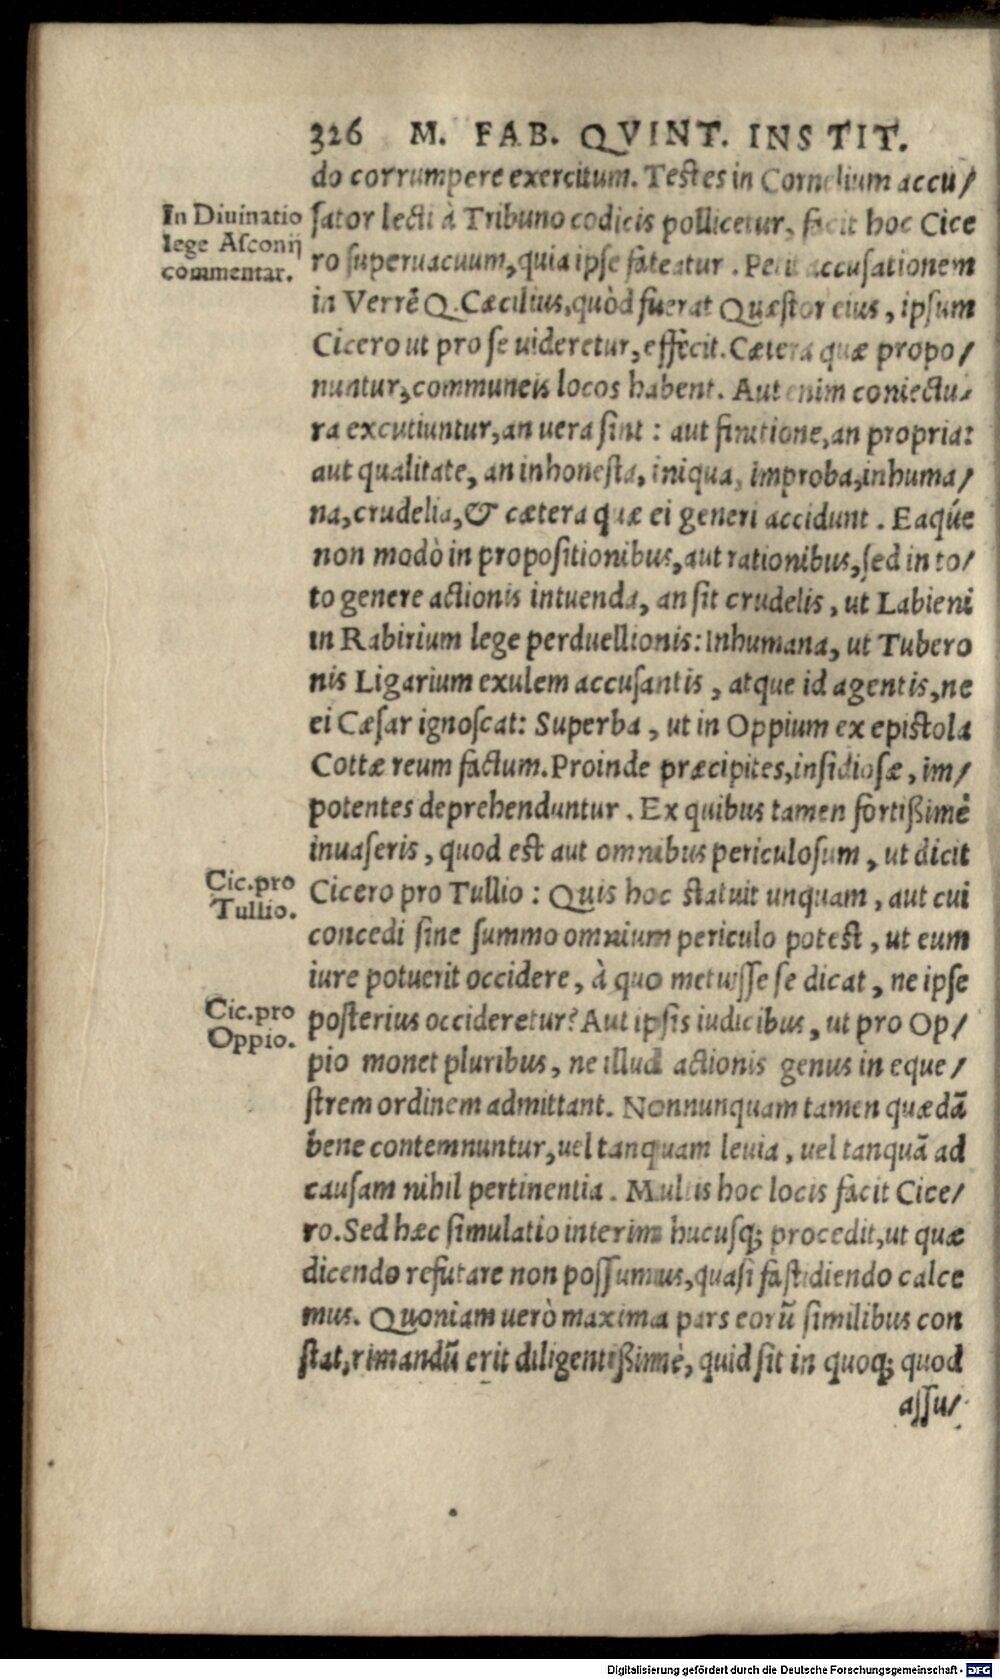 326 M. FAB. QVINT. INSTIT.
do corrumpere exercitum. Testes in Cornelium accu/
In Diuinatio
lege Asconij
commentar.
sator lecti à Tribuno codicis pollicetur, facit hoc Cice
ro superuacuum, quia ipse fateatur. Petit accusationem
in Verrẽ Q. Cæcilius, quòd fuerat Quæstor eius, ipsum
Cicero ut pro se uideretur, effecit. Cætera quæ propo/
nuntur, communeis locos habent. Aut enim coniectu/
ra excutiuntur, an uera sint: aut finitione, an propria:
aut qualitate, an inhonesta, iniqua, improba, inhuma/
na, crudelia, & cætera quæ ei generi accidunt. Eaq́ue
non modò in propositionibus, aut rationibus, sed in to/
to genere actionis intuenda, an sit crudelis, ut Labieni
in Rabirium lege perduellionis: Inhumana, ut Tubero
nis Ligarium exulem accusantis, atque id agentis, ne
ei Cæsar ignoscat: Superba, ut in Oppium ex epistola
Cottæ reum factum. Proinde præcipites, insidiosæ, im/
potentes deprehenduntur. Ex quibus tamen fortißimè
inuaseris, quod est aut omnibus periculosum, ut dicit
Cic.pro
Tullio.
Cicero pro Tullio: Quis hoc statuit unquam, aut cui
concedi sine summo omnium periculo potest, ut eum
iure potuerit occidere, à quo metuisse se dicat, ne ipse
Cic.pro
Oppio.
posterius occideretur? Aut ipsis iudicibus, ut pro Op/
pio monet pluribus, ne illud actionis genus in eque/
strem ordinem admittant. Nonnunquam tamen quædã
bene contemnuntur, uel tanquam leuia, uel tanquã ad
causam nihil pertinentia. Multis hoc locis facit Cice/
ro. Sed hæc simulatio interim hucusq; procedit, ut quæ
dicendo refutare non possumus, quasi fastidiendo calce
mus. Quoniam uerò maxima pars eorũ similibus con
stat, rimandũ erit diligentißimè, quid sit in quoq; quod
assu/